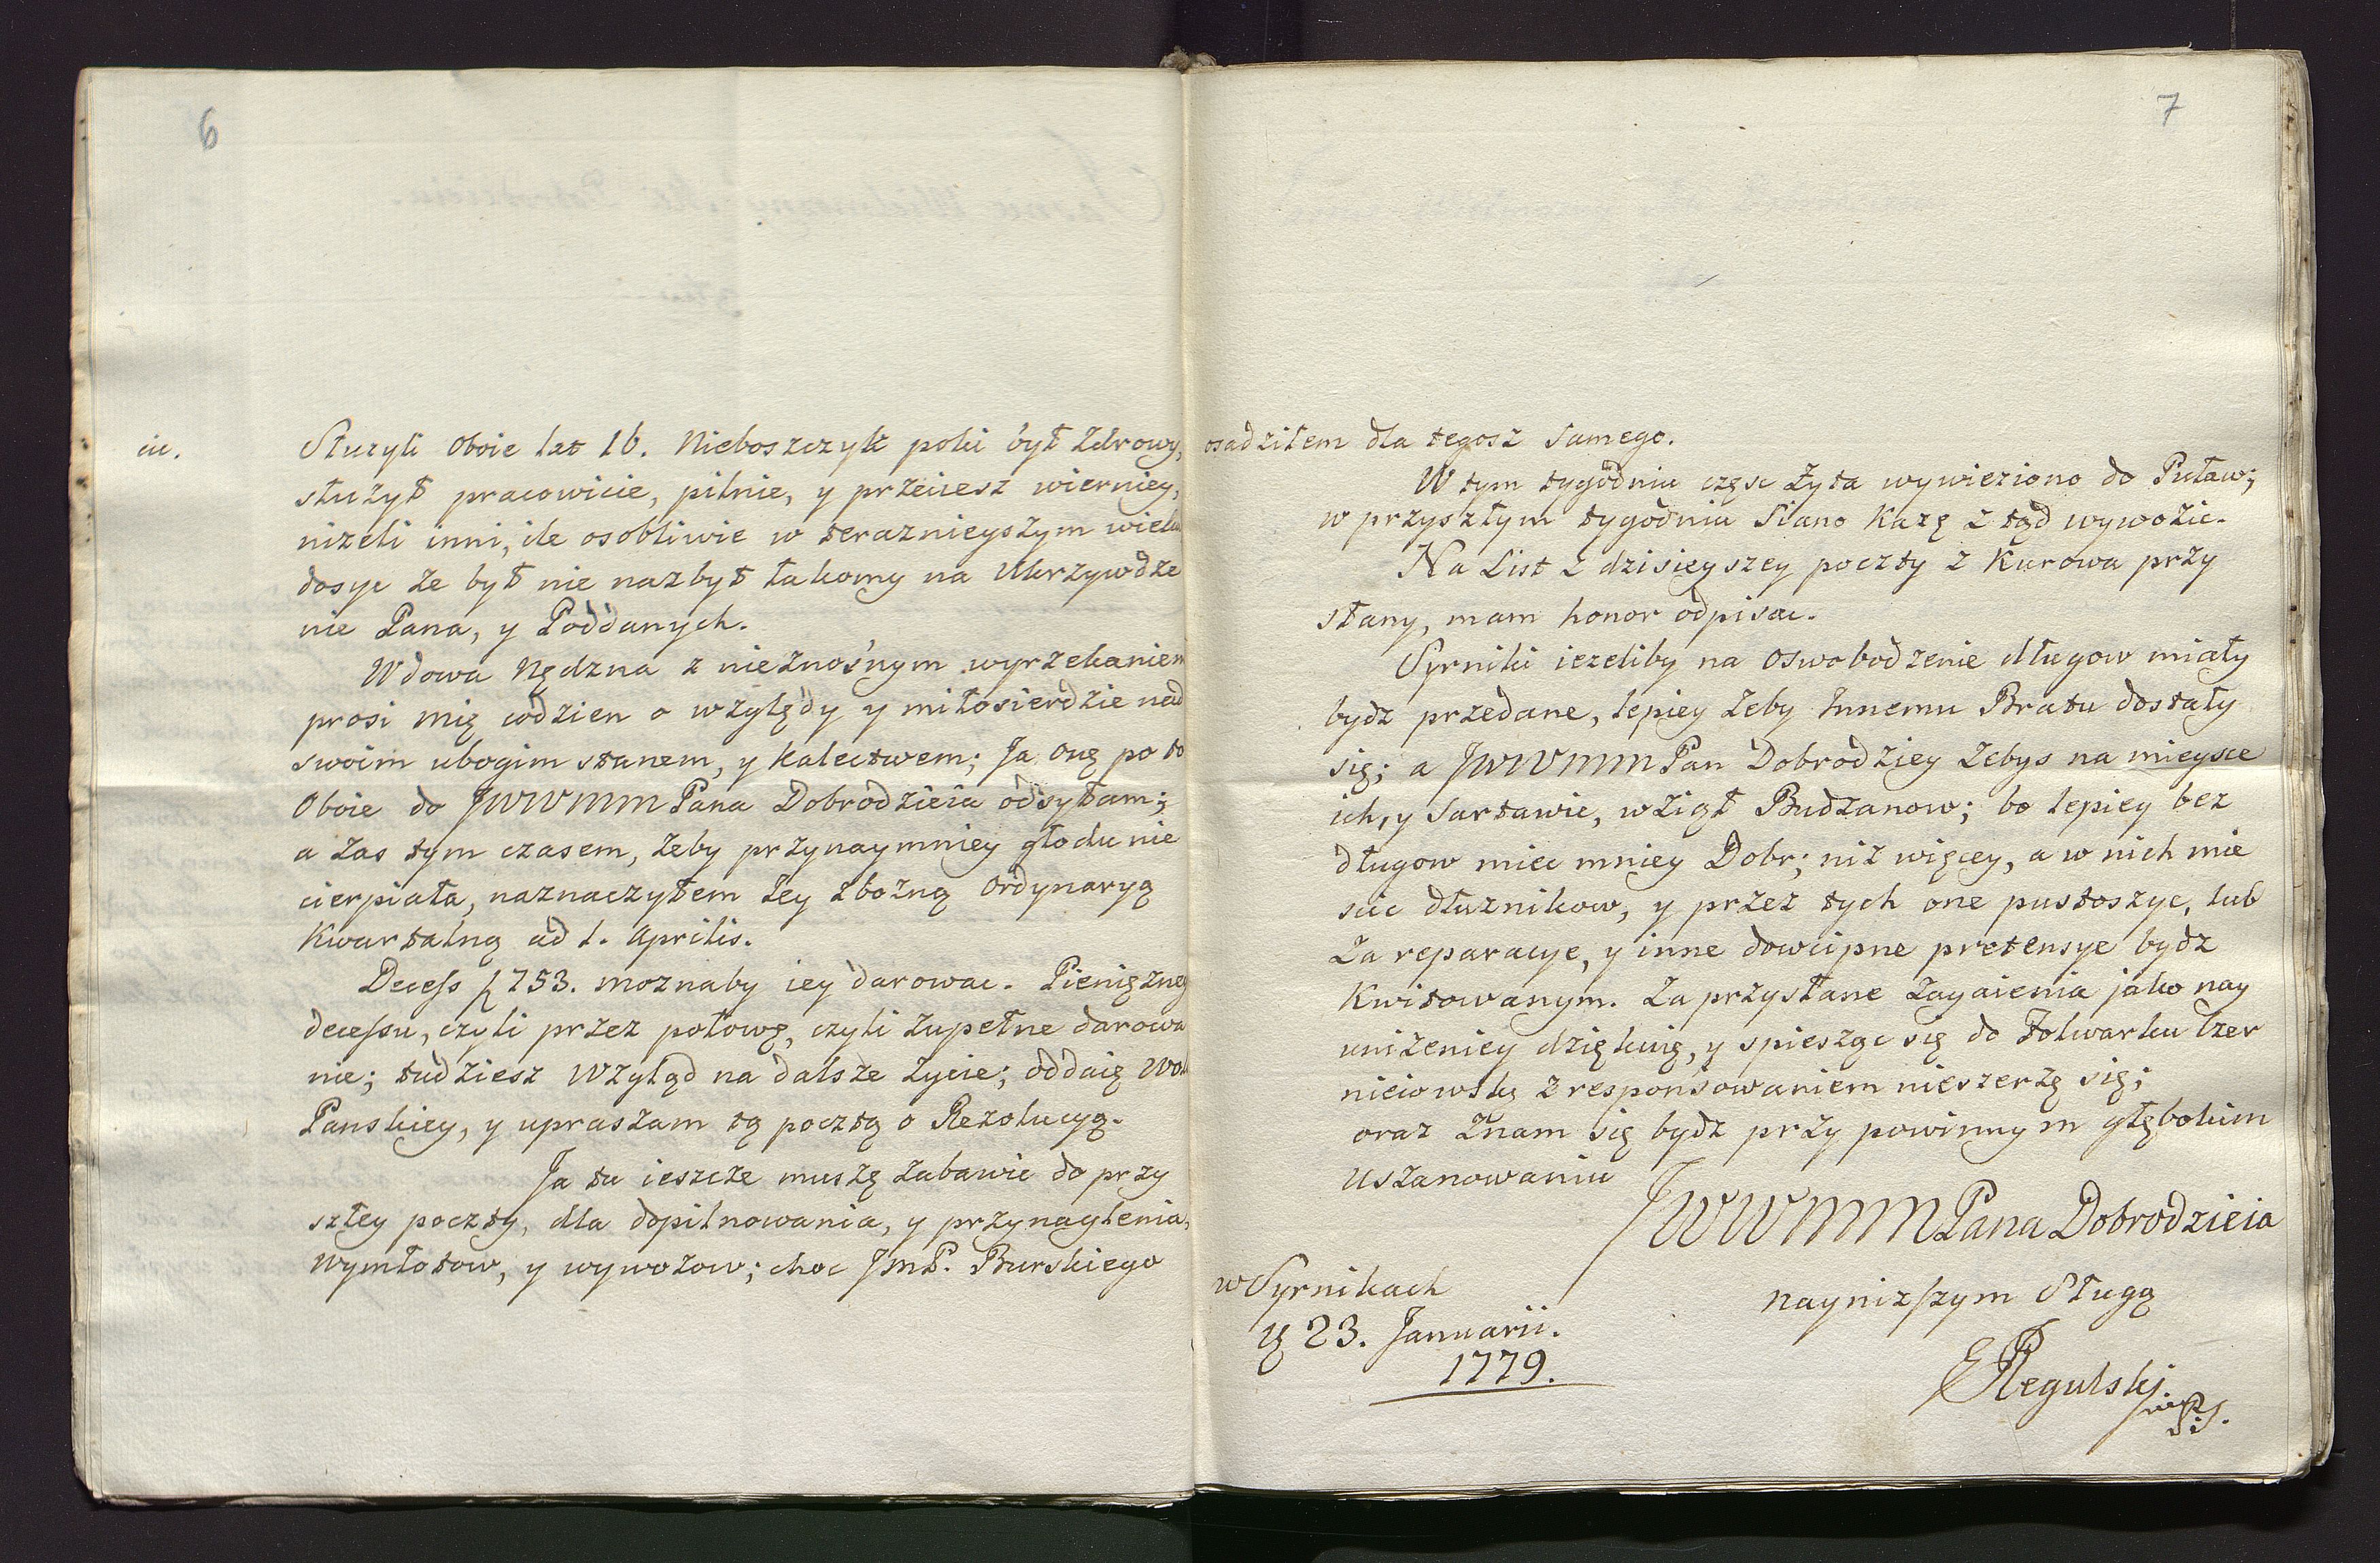 6
iu.
Służyli Oboie lat 16. Nieboszczyk poki był zdrowy,
służył pracowicie, pilnie, y przeciesz wierniey,
nizeli inni, ile osobliwie w teraznieyszym wieku
dosyc ze był nie nazbyt łakomy na Ukrzywdze
nie Pana, y Poddanych.
Wdowa Nędzna z nieznośnym wyrzekaniem
prosi mię codzien o względy y miłosierdzie nad
swoim ubogim stanem, y kalectwem; Ja Onę po to
Oboie do JWWMM Pana Dobrodzieia odsyłam;
a zas tym czasem, żeby przynaymniey głodu nie
cierpiała, naznaczyłem Jey zbożną Ordynaryą
Kwartalną ad 1. Aprilis.
Decess f 753. moznaby iey darowac. Pienięzneg
decessu, czyli przez połowę, czyli zupełne darowa
nie; tudziesz Wzgląd na dalsze życie; oddaię Woli
Panskiey, y upraszam tą pocztą o Rezolucyą.
Ja tu ieszcze muszę zabawic do przy
szłey poczty, dla dopilnowania, y przynaglenia,
wymłotow, y wywozow; choc JmP. Burskiego
7
osadziłem dla tegosz samego.
W tym tygodniu częsc Zyta wywieziono do Puław;
w przyszłym tygodniu Siano Każę z tąd wywozic.
Na List z dzisieyszey poczty z Kurowa przy
słany, mam honor odpisac.
Syrniki iezeliby na Oswobodzenie długow miały
bydz przedane, lepiey zeby Innemu Bratu dostały
się; a JWWMM Pan Dobrodziey zebys na mieysce
ich, y Sartawie, wziął Budzanow; bo lepiey bez
długow miec mniey Dobr; niz więcey, a w nich mie
scic dłuznikow, y przez tych one pustoszyc, lub
Za reparacye, y inne dowcipne pretensye bydz
Kwitowanym. Za przysłane Zagaienia jako nay
uniżeniey dziękuię, y spiesząc się do Folwarku Czer
nieiowską z responsowaniem nieszerzę się;
oraz Znam się bydz przy powinnym głębokim
uszanowaniu
JWWMM Pana Dobrodzieia
w Syrnikach
23. Januarii.
1779.
nayniższym Sługą
Regulski